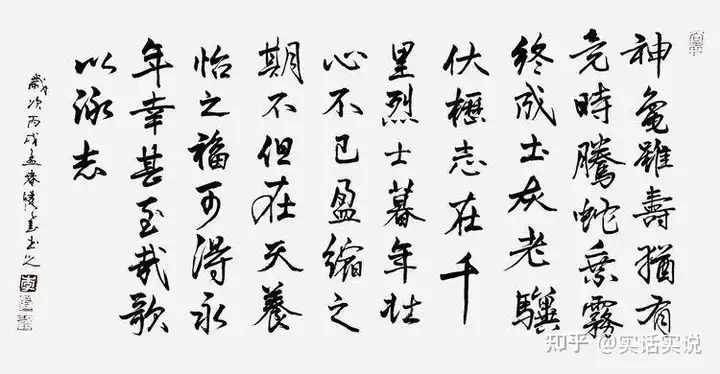 神龜雖壽猶有
竟時騰蛇乘霧
終成土灰老驥
伏櫪志在千
里烈士暮年壯
心不已盈縮之
期不但在天養
怡之福可得永
年幸甚至哉歌
以詠志
歲次丙戌孟春書之
知乎 @实话实说